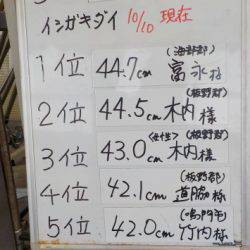 イシガキダイ 10/10 現在
(海部郡)
1位 44.7cm 富永様
(板野郡)
2位 44.5cm 木内様
<女性> (板野郡)
3位 43.0cm 木内様
(板野郡)
4位 42.1cm 道脇様
(鳴門市)
5位 42.0cm 竹内様